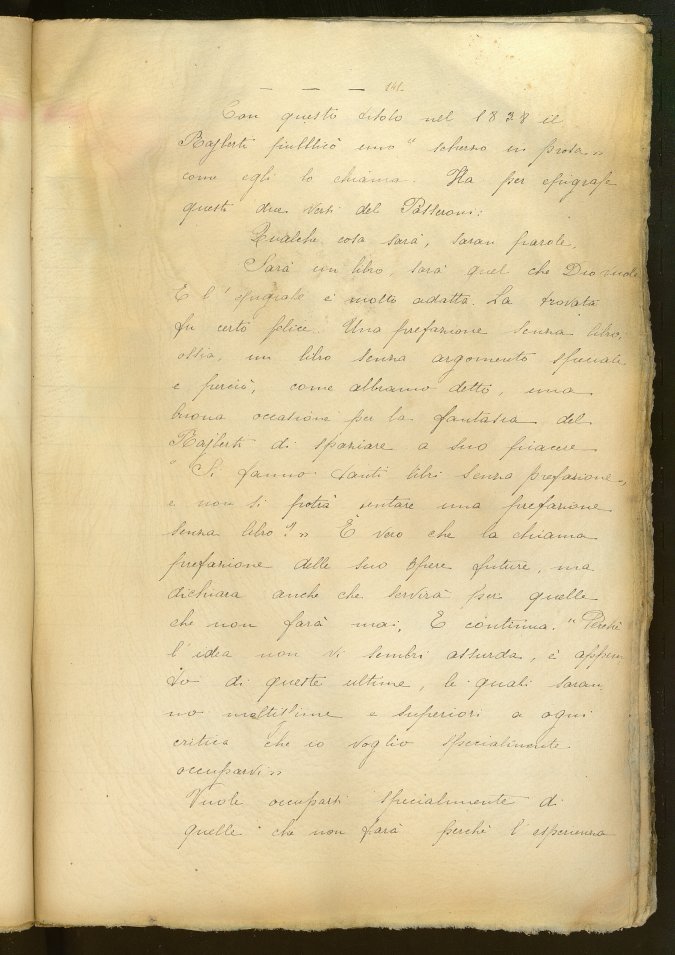 — — — 141.
Con questo titolo nel 1838 il
Rajberti pubblicò uno "scherzo in prosa„
come egli lo chiama. Ha per epigrafe
questi due versi del Passeroni:
Qualche cosa sarà, saran parole,
Sarà un libro, sarà quel che Dio vuole
E l'epigrafe è molto adatta. La trovata
fu certo felice. Una prefazione senza libro,
ossia, un libro senza argomento speciale
e perciò, come abbiamo detto, una
buona occasione per la fantasia del
Rajberti di spaziare a suo piacere
"Si fanno tanti libri senza prefazione„
e non si potrà tentare una prefazione
senza libro?„ È vero che la chiama
prefazione delle sue opere future, ma
dichiara anche che servirà per quelle
che non farà mai, E continua. "Perchè
l'idea non vi sembri assurda, è appun
to di queste ultime, le quali saran
no moltissime e superiori a ogni
critica che io voglio specialmente
occuparvi„
Vuole occuparsi specialmente di
quelle che non farà perchè l'esperienza